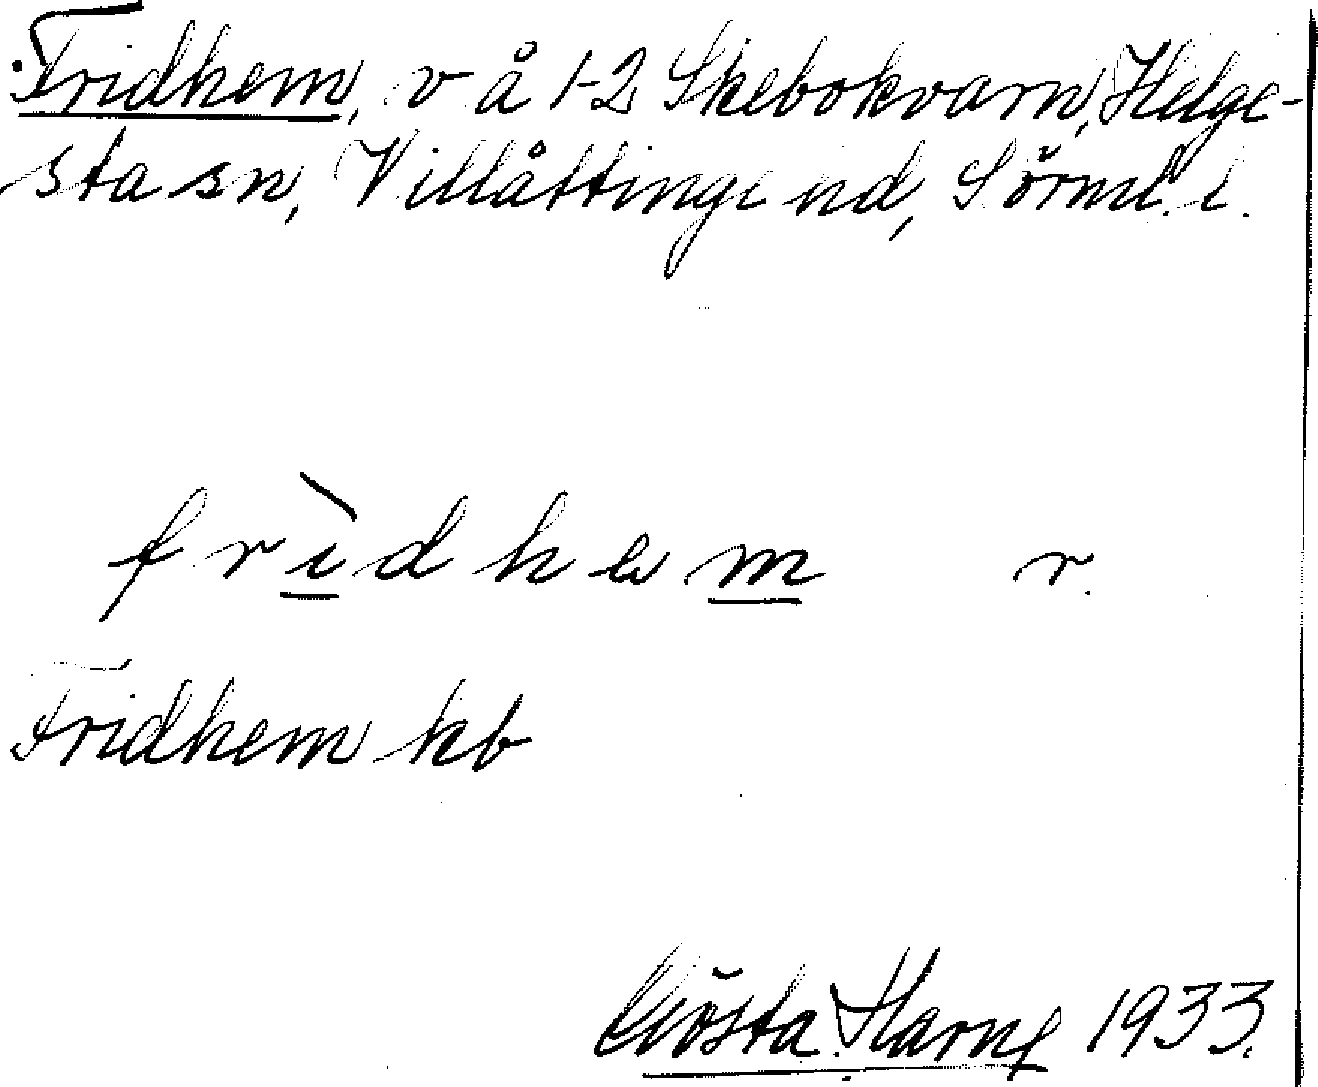 Fridhem, v å 1-2 Skebokvarn, Helge-
sta sn, Villåttinge hd, Sörml. l.
frìdhem r.
Fridhem kb
Gösta Harne 1933.